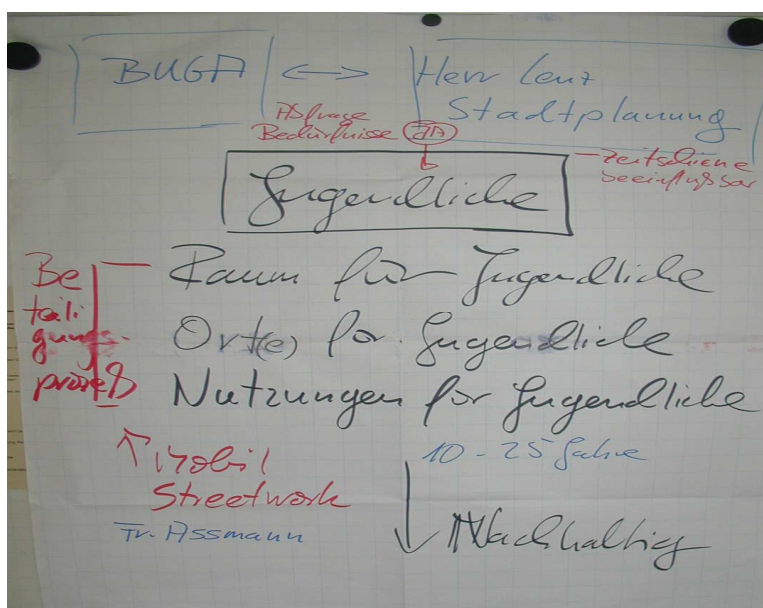 BUGA ↔ Herr Lenz
Stadtplanung
Abfrage
Bedürfnisse JA
Zeitschiene
beeinflußbar
Jugendliche
Be
teili
gungs-
prozeß
Raum für Jugendliche
Ort(e) für Jugendliche
Nutzungen für Jugendliche
10 - 25 Jahre
↑ Mobil
Streetwork
Fr. Assmann
↓ Nachhaltig